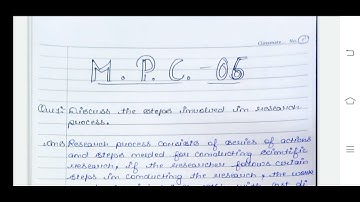 Classmate No. 1
M.P.C. - 05
Ques1: Discuss the steps involved in research
process.
Ans: Research process consists of series of actions
and steps needed for conducting scientific
research, if the researcher follows certain
steps in conducting the research, the work